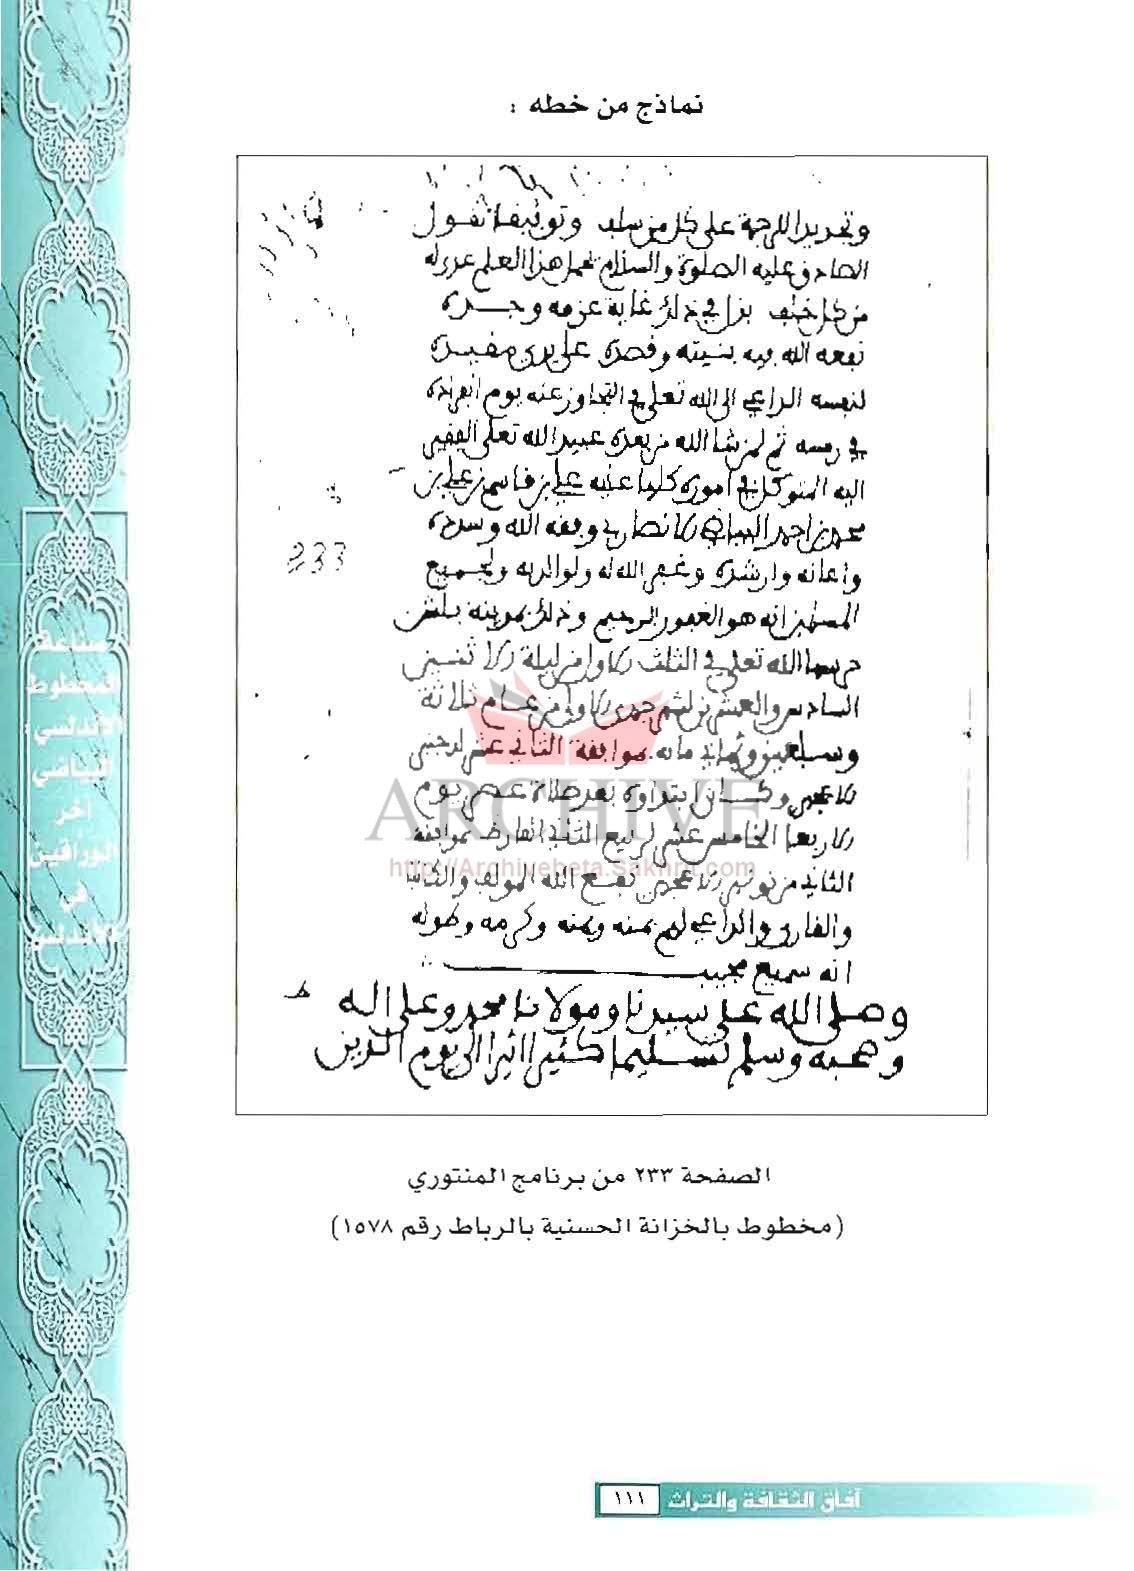 نماذج من خطه :
وتحريد اللرجمة على كل من سلب وتوثيفا لفول
الصادق عليه الصلوة والسلام يحمل هذا العلم عدوله
من كل خلف بذل في ذلك غاية عزمه وجده
نفعه الله به بنيته وقصده على يدي مفيده
لنفسه الراجي الى الله تعلى في التجاوز عنه يوم انفراده
في رمسه ثم لمن شا الله من بعده عبيد الله تعلى الفقير
اليه المتوكل في اموره كلها عليه علي بن قاسم بن علي بن
محمد بن احمد البياضي الانصاري وفقه الله وسدده
واعانه وارشده وغفر الله له ولوالديه ولجميع
المسلمين انه هو الغفور الرحيم وذلك بمدينة بلش
حرسها الله تعلى في الثلث الاول من ليلة الاثنين
السادس والعشرين لشهر جمدى الاولى من عام ثلاثة
وسبعين وثماني مائه موافقة الثاني عشر لدجنبر
الاعجمي وكان ابتداوه بعد صلاة عصر يوم
الاربعا الخامس عشر لربيع الثاني الفارط بموافقة
الثاني من نونبر الاعجمي نفع الله المولف والكاتب
والقارئ والداعي لهم بمنه ويمنه وكرمه وطوله
انه سميع مجيب
وصلى الله على سيدنا ومولانا محمد وعلى اله
وصحبه وسلم تسليما كثيرا اثيرا الى يوم الدين
233
ARCHIVE
http://Archivebeta.Sakhrit.com
الصفحة ٢٣٣ من برنامج المنتوري
(مخطوط بالخزانة الحسنية بالرباط رقم ١٥٧٨)
صناعة
المخطوط
الأندلسي :
البياضي
آخر
الوراقين
في
الأندلس
آفاق الثقافة والتراث ١١١